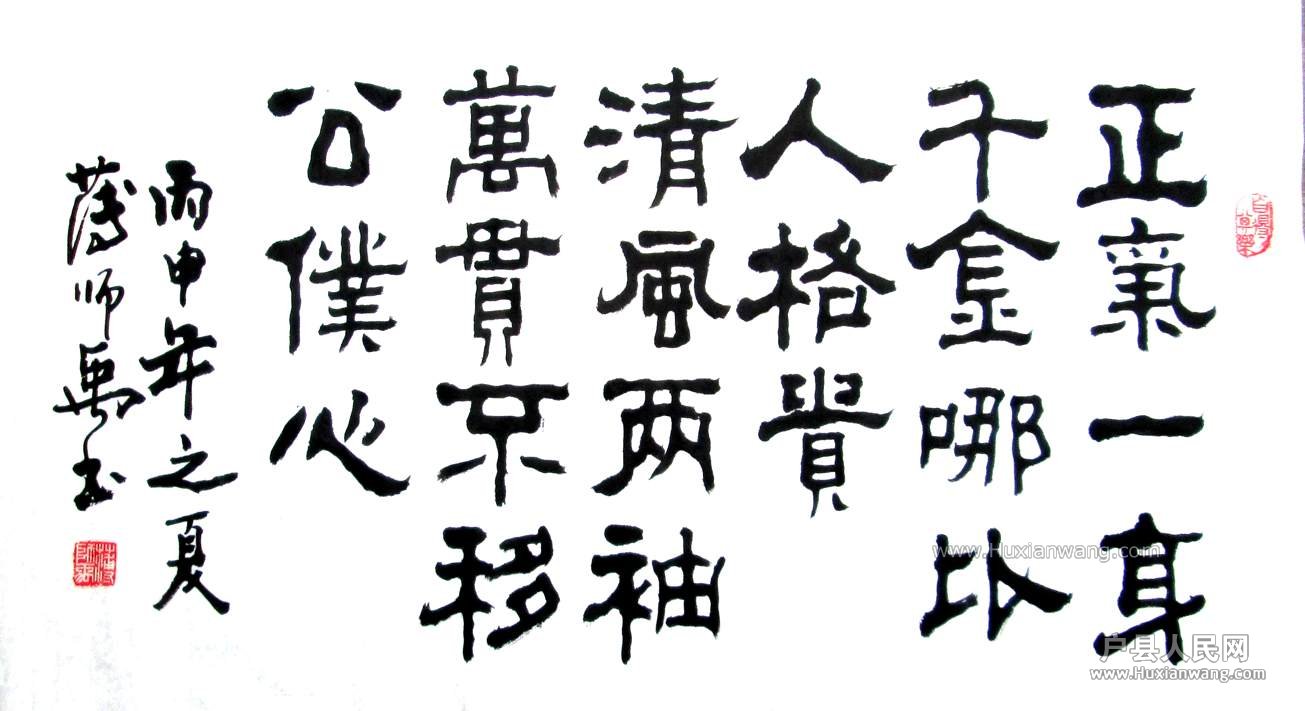 正氣一身
千金哪比
人格貴
清風两袖
萬貫不移
公僕心
丙申年之夏
薄师禹书
www.Huxianwang.com
户县人民网
www.Huxianwang.com